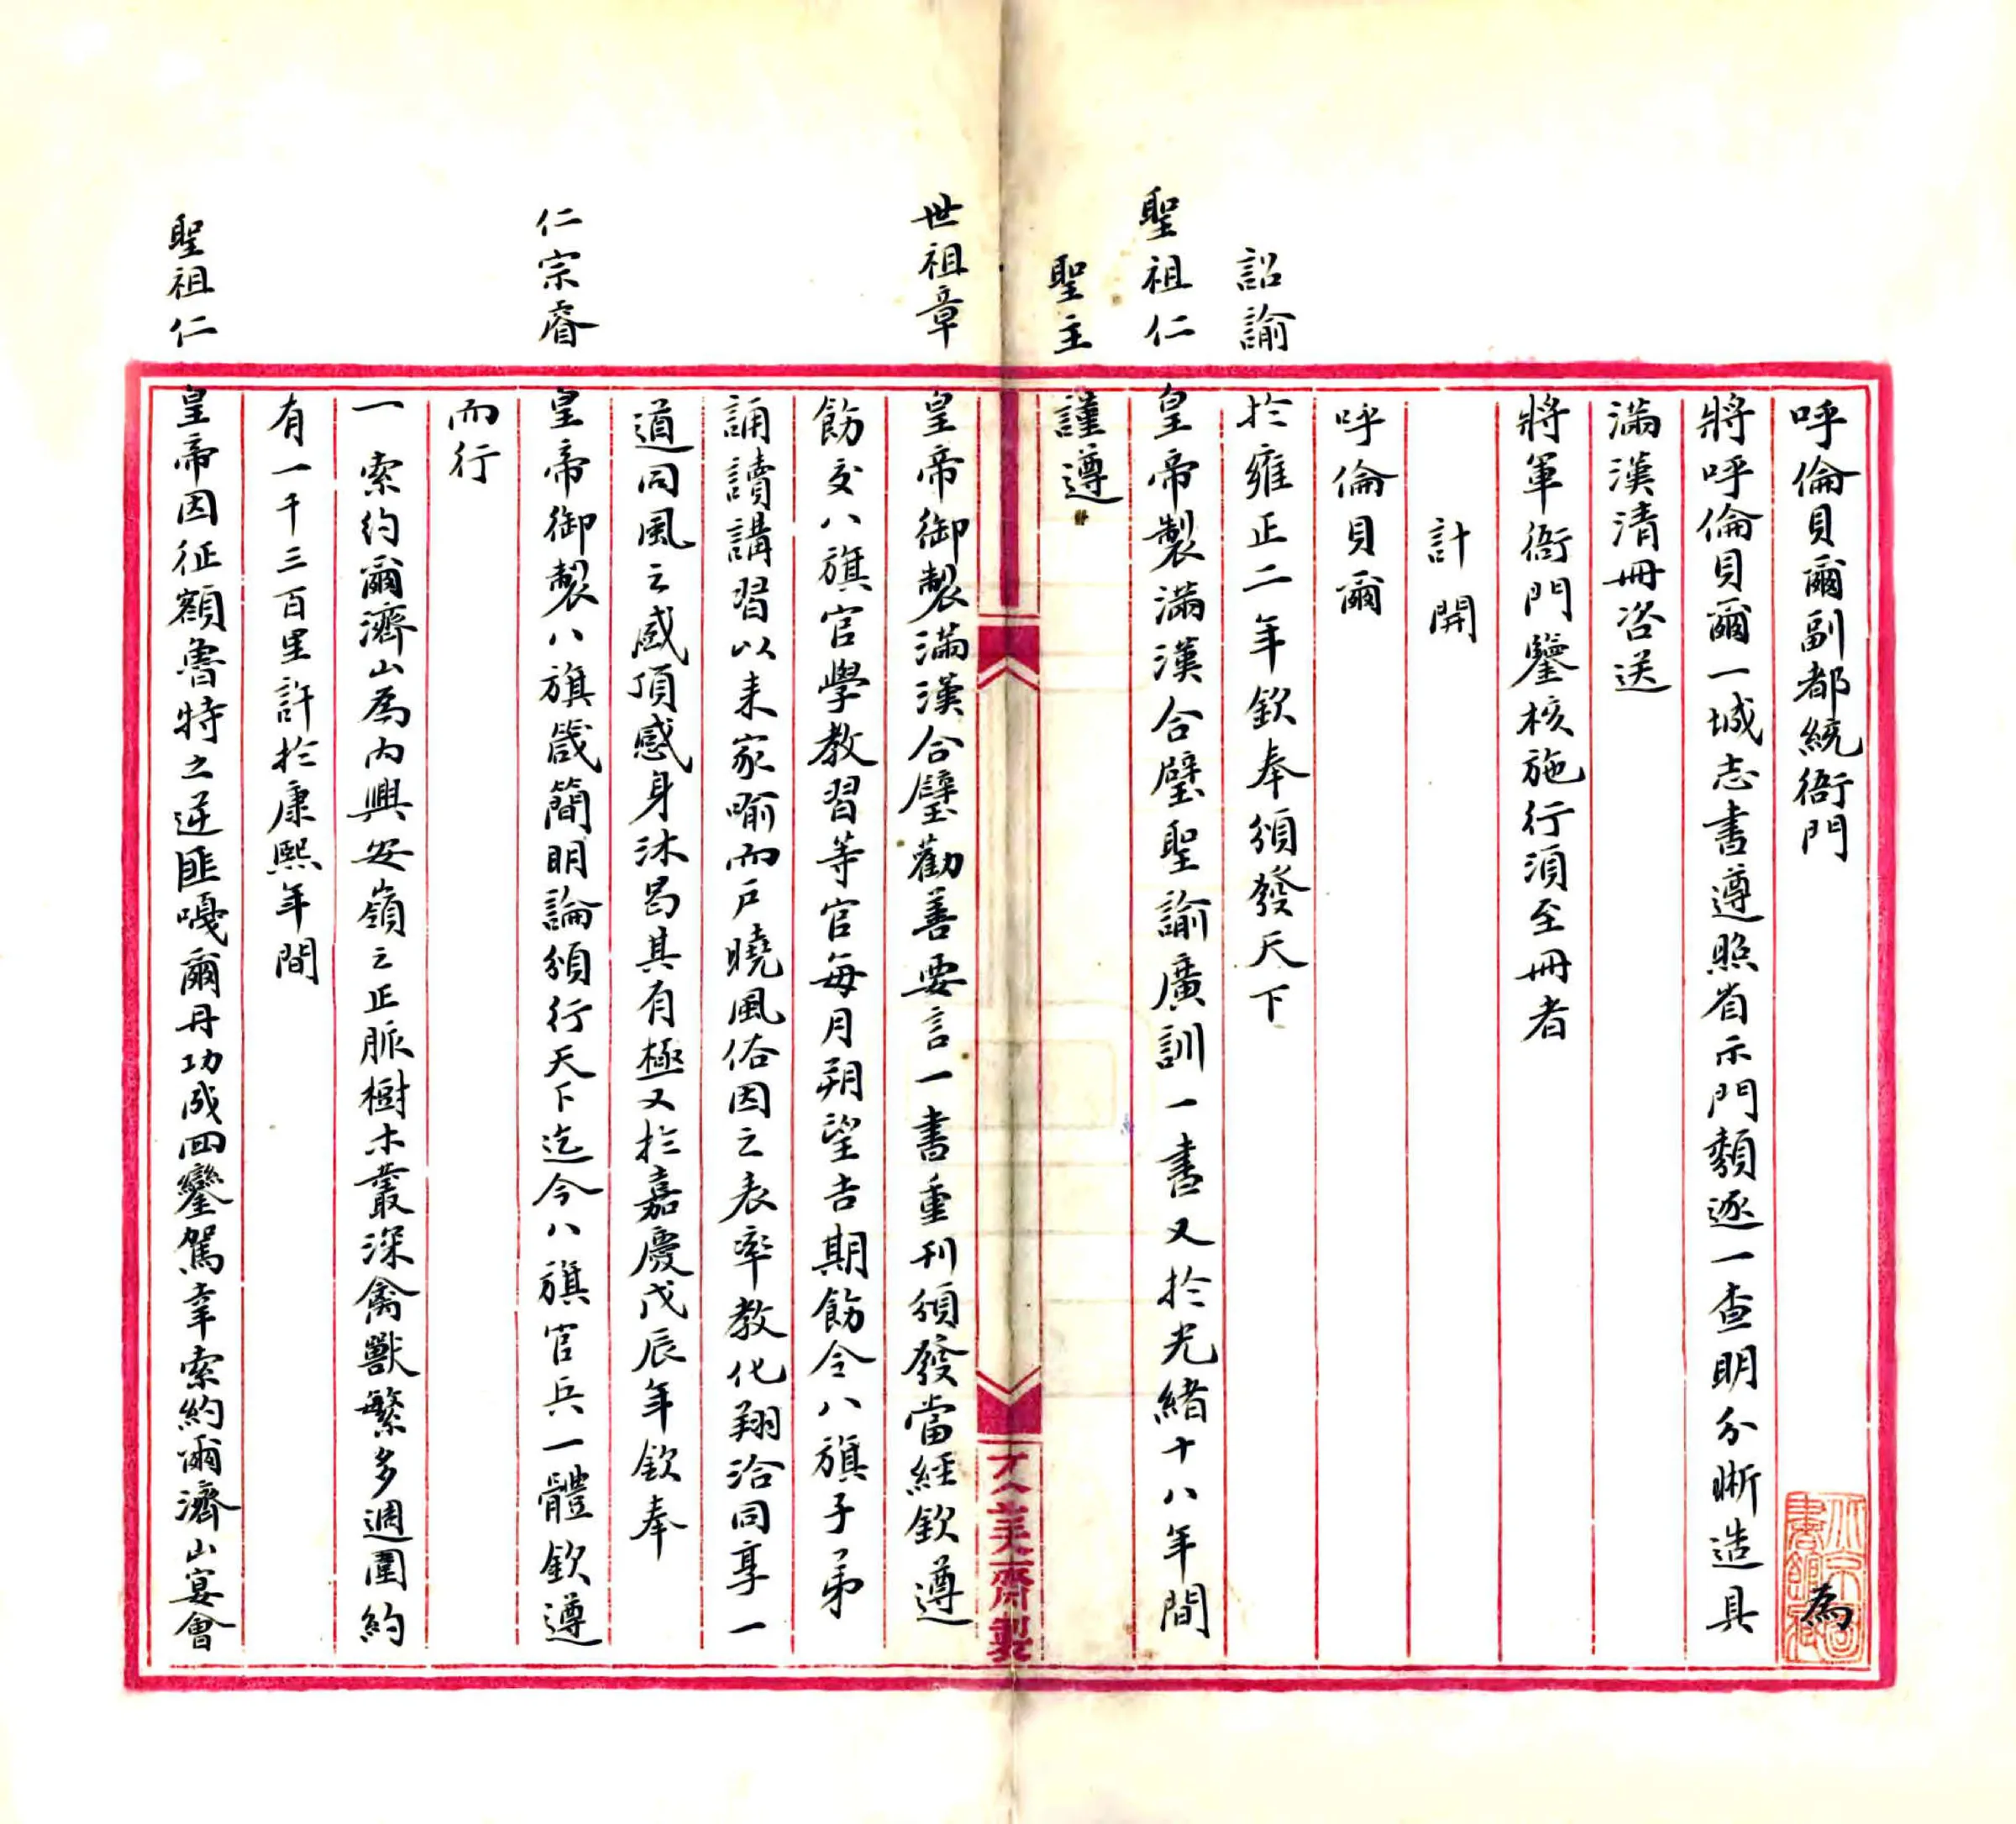 呼倫貝爾副都統衙門 為
將呼倫貝爾一城志書遵照省示門類逐一查明分晰造具
滿漢清冊咨送
將軍衙門鑒核施行須至冊者
計開
呼倫貝爾
詔諭於雍正二年欽奉頒發天下
聖祖仁皇帝製滿漢合璧聖諭廣訓一書又於光緒十八年間
聖主謹遵
世祖章皇帝御製滿漢合璧勸善要言一書重刊頒發當經欽遵
飭交八旗官學教習等官每月朔望吉期飭令八旗子弟
誦讀講習以来家喻而戶曉風俗因之表率教化翔洽同享一
道同風之盛頂感身沐曷其有極又於嘉慶戊辰年欽奉
仁宗睿皇帝御製八旗箴簡明論頒行天下迄今八旗官兵一體欽遵
而行
一索約爾濟山為內興安嶺之正脈樹木叢深禽獸繁多週圍約
有一千三百里許於康熙年間
聖祖仁皇帝因征額魯特之逆匪噶爾丹功成囬鑾駕幸索約爾濟山宴會
美齋製